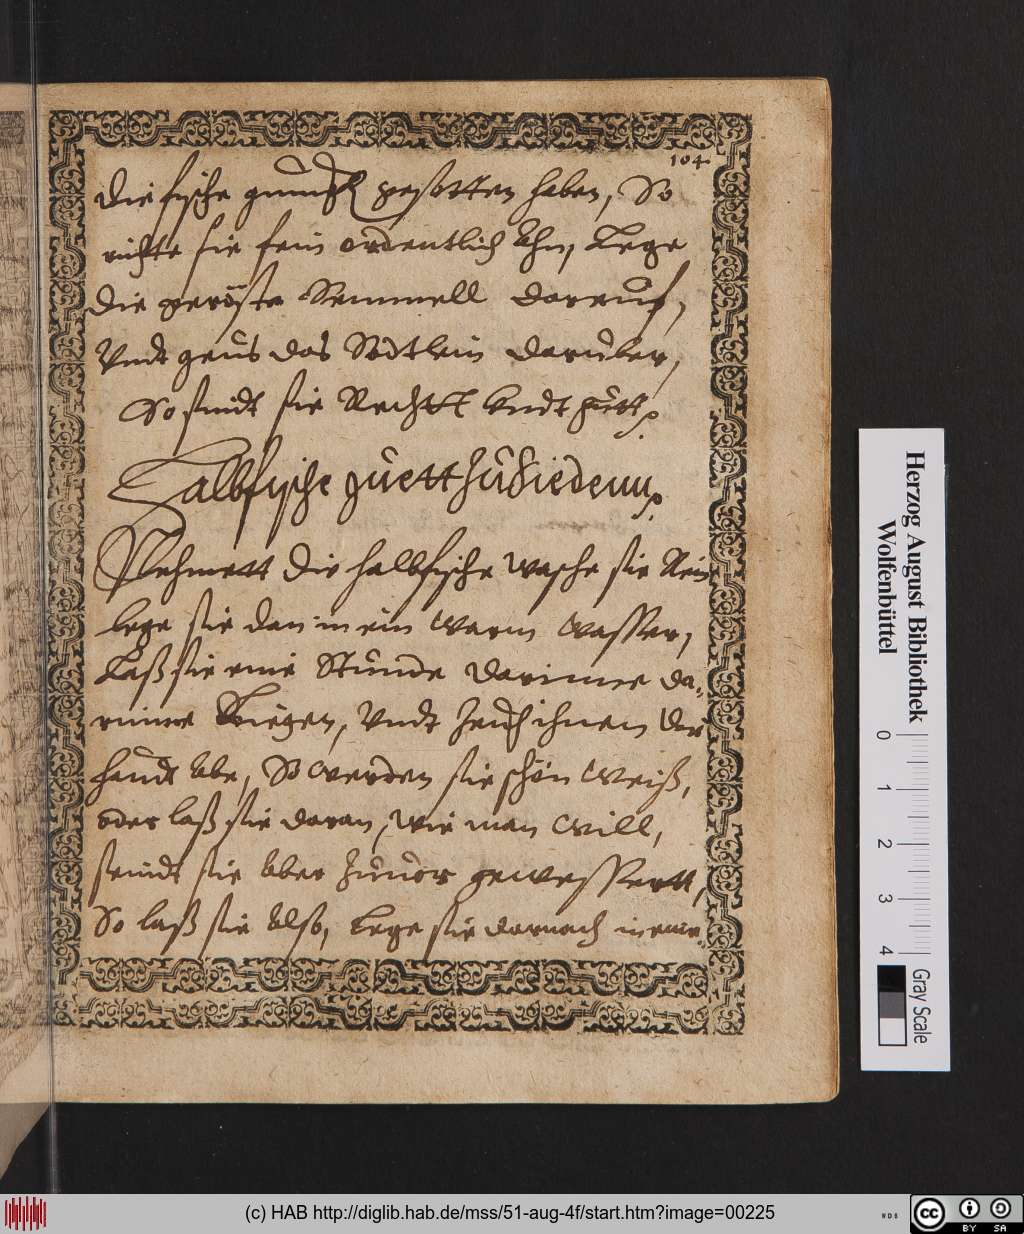 104
die fische genungk gesotten haben, So
richtte sie fein ordentlich Ahn, Lege
die geröste Semmell darauf,
Undt geus das Södtlein daruber,
So seindt sie Rechtt Undt gutt
Halbfische guett zu Siedenn
Nehmett die halbfische wasche sie Rein
lege sie dan in ein Warm Wasser,
Laß sie eine Stunde darinne da-
rinne Liegen, Undt Zeuch ihnen die
haudt Abe, So Werden sie schön Weiß,
oder laß sie daran, wie man Will,
seindt sie Aber Zuuor gewessertt,
So laß sie Also, Lege sie darnach in eine
Herzog August Bibliothek
Wolfenbüttel
0 1 2 3 4
Gray Scale
(c) HAB http://diglib.hab.de/mss/51-aug-4f/start.htm?image=00225
WDB
cc BY SA